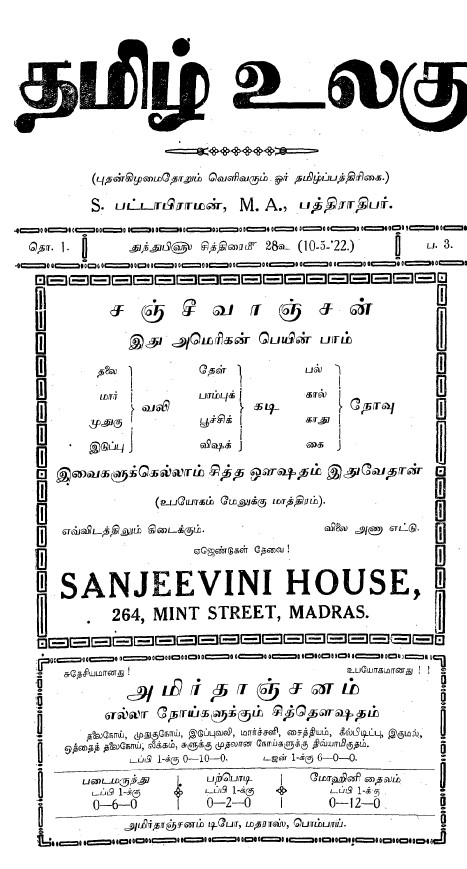 தமிழ் உலகு
(புதன்கிழமைதோறும் வெளிவரும் ஓர் தமிழ்ப்பத்திரிகை.)
S. பட்டாபிராமன், M. A., பத்திராதிபர்.
தொ. 1. துந்துபிஹு சித்திரைமீ 28உ (10-5-'22.) ப. 3.
சஞ்சீவாஞ்சன்
இது அமெரிகன் பெயின் பாம்
தலை தேள் பல்
மார் பாம்புக் கால்
வலி கடி நோவு
முதுகு பூச்சிக் காது
இடுப்பு விஷக் கை
இவைகளுக்கெல்லாம் சித்த ஔஷதம் இதுவேதான்
(உபயோகம் மேலுக்கு மாத்திரம்).
எவ்விடத்திலும் கிடைக்கும். விலை அணா எட்டு.
ஏஜெண்டுகள் தேவை!
SANJEEVINI HOUSE,
264, MINT STREET, MADRAS.
சுதேசியமானது! உபயோகமானது!!
அமிர்தாஞ்சனம்
எல்லா நோய்களுக்கும் சித்தௌஷதம்
தலைநோய், முதுகுநோய், இடுப்புவலி, மார்ச்சளி, சைத்தியம், கீல்பிடிப்பு, இருமல்,
ஒத்தைத் தலைநோய், வீக்கம், சுளுக்கு முதலான நோய்களுக்கு திவ்யாமிருதம்.
டப்பி 1-க்கு 0—10—0. டஜன் 1-க்கு 6—0—0.
படைமருந்து பற்பொடி மோஹினி தைலம்
டப்பி 1-க்கு டப்பி 1-க்கு டப்பி 1-க்கு
0—6—0 0—2—0 0—12—0
அமிர்தாஞ்சனம் டிபோ, மதராஸ், பொம்பாய்.